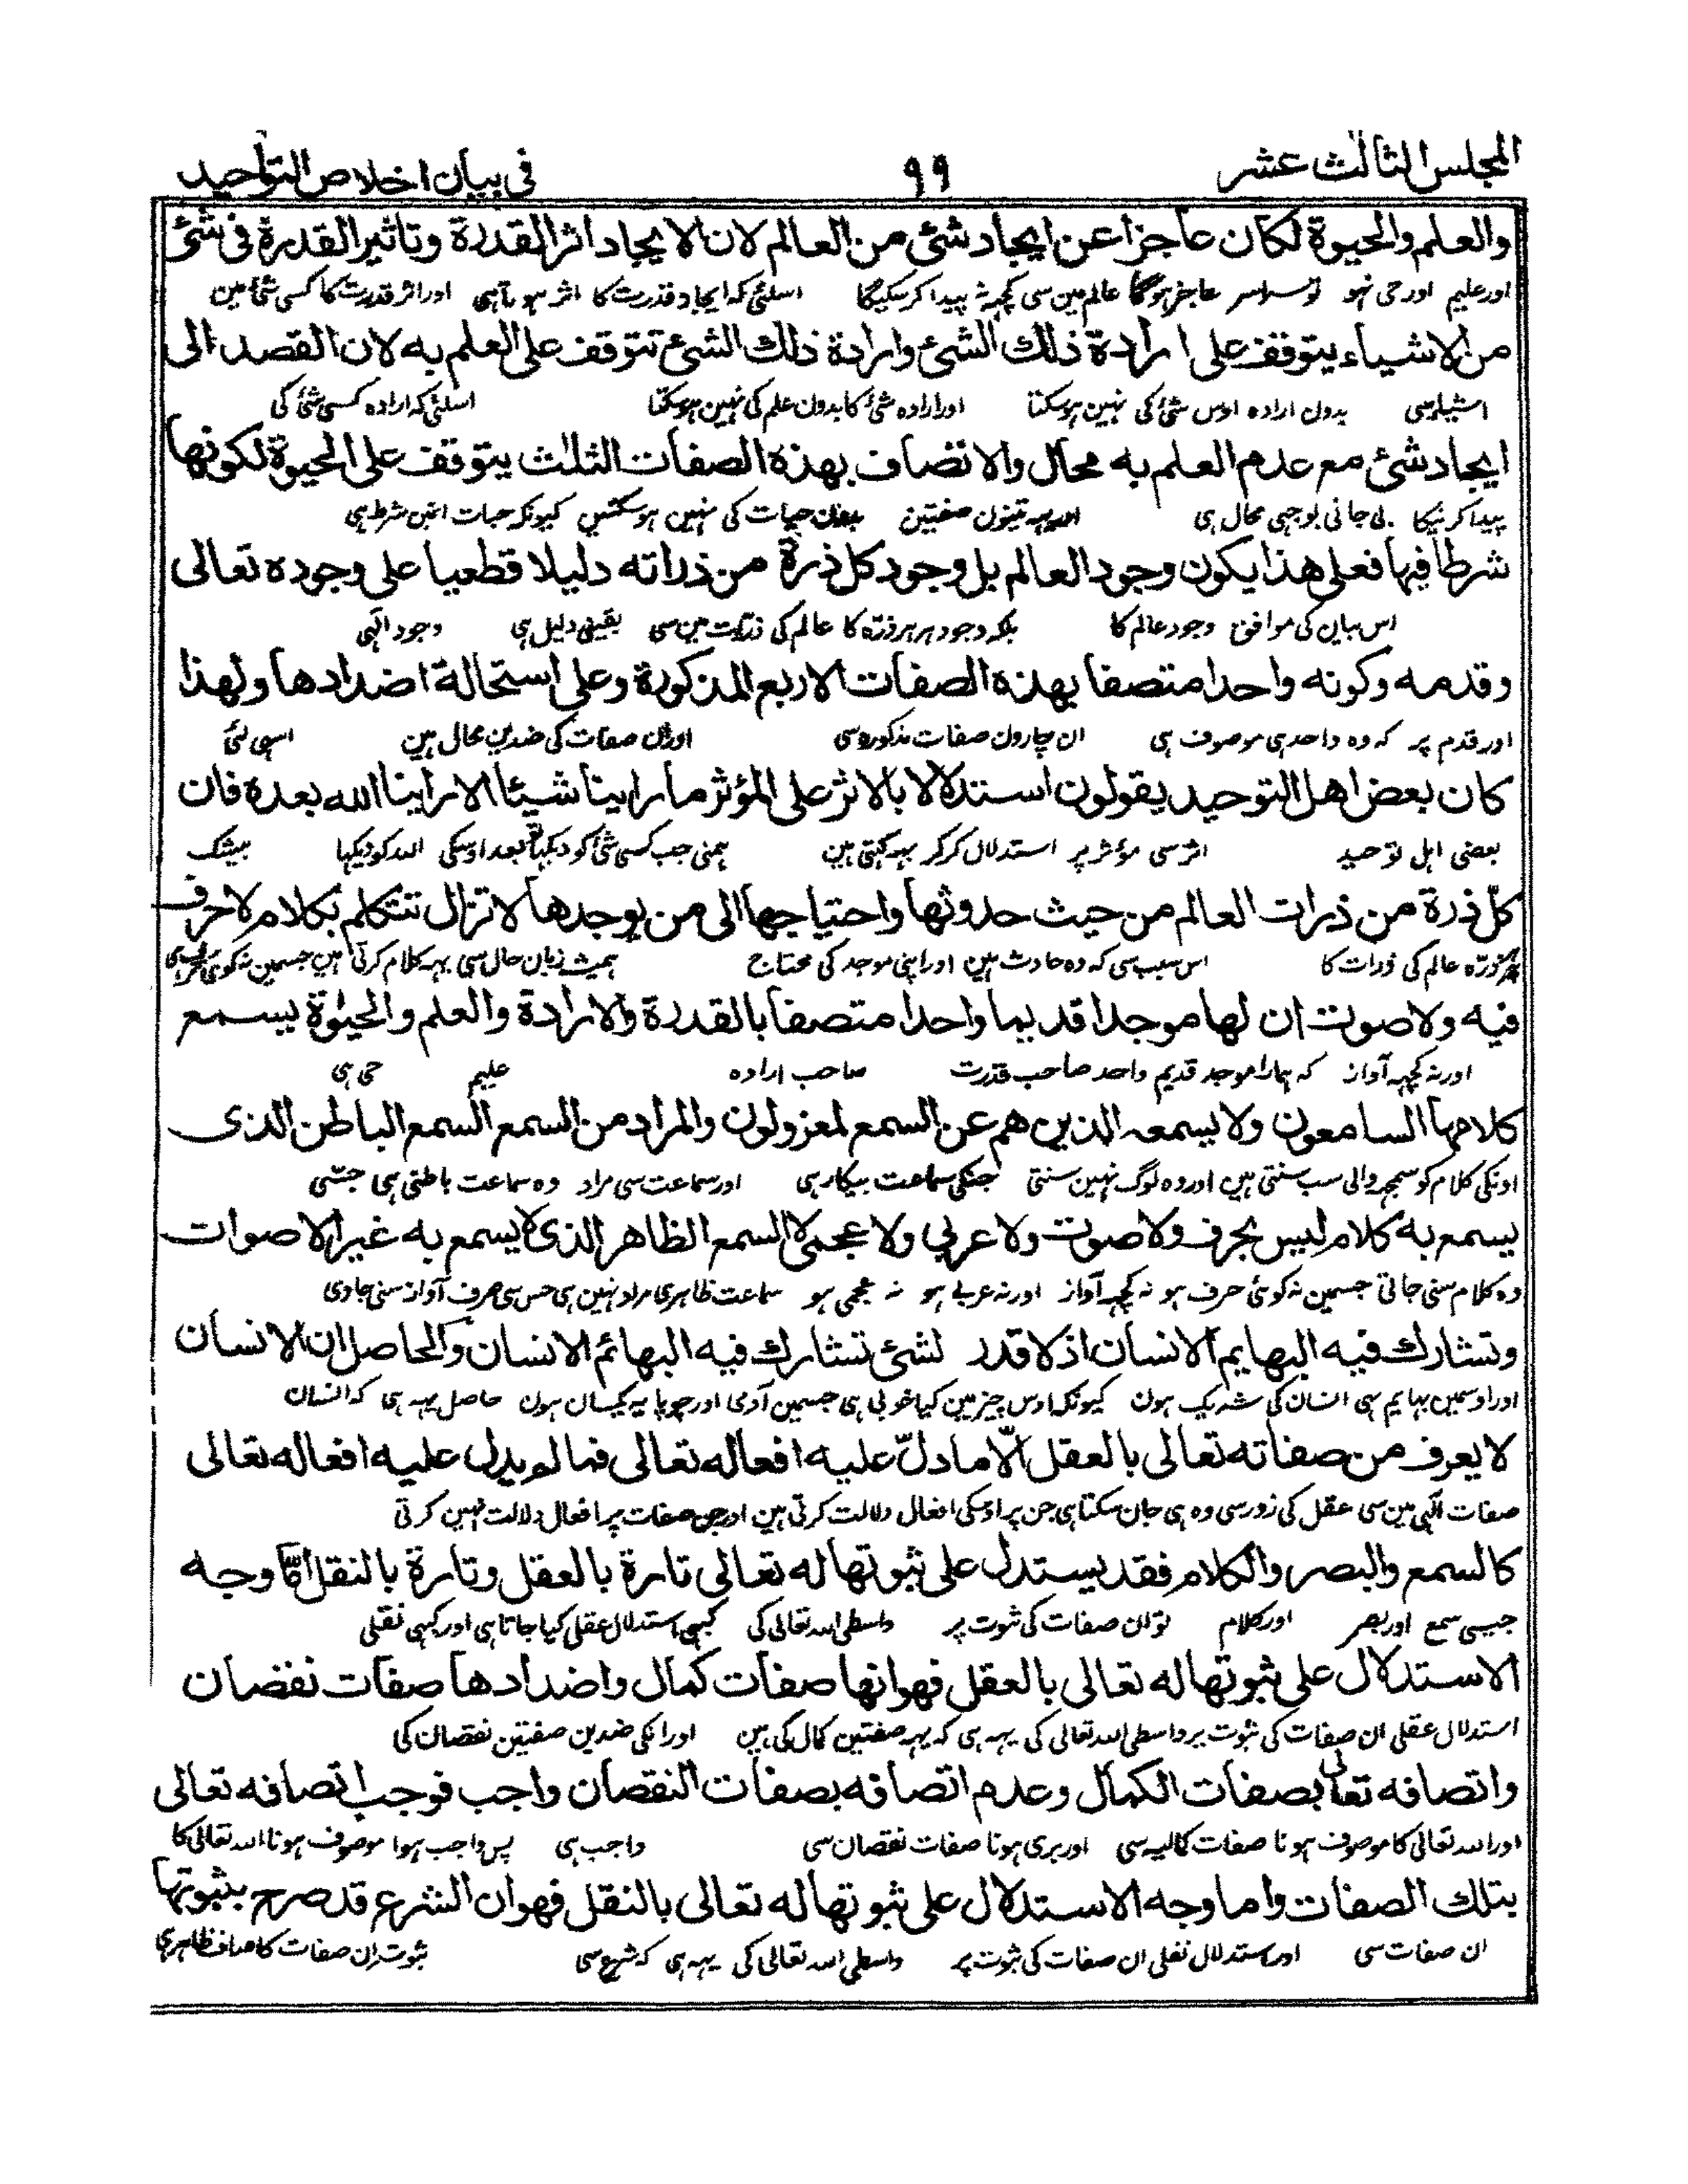 المجلس الثالث عشر
٩٩
فى بيان اخلاص التواحيد
والعلم والحيوة لكان عاجزا عن ايجاد شئ من العالم لان الايجاد اثر القدرة وتاثير القدرة فى شئ
اور علیم اور حی نہو تو سراسر عاجز ہوگا عالم مین سی کچہہ نہ پیدا کر سکیگا اسلئی کہ ایجاد قدرت کا اثر ہوتا ہی اور اثر قدرت کا کسی شئ مین
من الاشياء يتوقف على ارادة ذلك الشئ وارادة ذلك الشئ تتوقف على العلم به لان القصد الى
اشیا سی بدون ارادہ اوس شئ کی نہین ہو سکتا اور ارادہ شئ کا بدون علم کی نہین ہو سکتا اسلئی کہ ارادہ کسی شئ کی
ايجاد شئ مع عدم العلم به محال والاتصاف بهذه الصفات الثلث يتوقف على الحيوة لكونها
پیدا کرنیکا بی جانی بوجہی محال ہی اور یہہ تینون صفتین بدون حیات کی نہین ہو سکتین کیونکہ حیات انمین شرط ہی
شرطا فيها فعلى هذا يكون وجود العالم بل وجود كل ذرة من ذراته دليلا قطعيا على وجوده تعالى
اس بیان کی موافق وجود عالم کا بلکہ وجود ہر ہر ذرّہ کا عالم کی ذرّات مین سی یقینی دلیل ہی وجود الٰہی
وقدمه وكونه واحدا متصفا بهذه الصفات الاربع المذكورة وعلى استحالة اضدادها ولهذا
اور قدم پر کہ وہ واحد ہی موصوف ہی ان چارون صفات مذکورہ سی اور ان صفات کی ضدین محال ہین اسی لئی
كان بعض اهل التوحيد يقولون استدلالا بالاثر على المؤثر ما راينا شيئا الا راينا الله بعده فان
بعضی اہل توحید اثر سی مؤثر پر استدلال کرکر یہہ کہتی ہین ہمنی جب کسی شئ کو دیکہا تو بعد اوسکی اللہ کو دیکہا بیشک
كلّ ذرة من ذرات العالم من حيث حدوثها واحتياجها الى من يوجدها لا تزال تتكلم بكلام لا حرف
ہر ذرّہ عالم کی ذرات کا اس سبب سی کہ وہ حادث ہین اور اپنی موجد کی محتاج ہمیشہ زبان حال سی یہہ کلام کرتی ہین جسمین نہ کوئی حرف ہی
فيه ولا صوت ان لها موجدا قديما واحدا متصفا بالقدرة والارادة والعلم والحيوة يسمع
اور نہ کچہہ آواز کہ ہمارا موجد قدیم واحد صاحب قدرت صاحب ارادہ علیم حی ہی
كلامها السامعون ولا يسمعه الذين هم عن السمع لمعزولون والمراد من السمع السمع الباطن الذى
اونکی کلام کو سمجہہ والی سب سنتی ہین اور وہ لوگ نہین سنتی جنکی سماعت بیکار ہی اور سماعت سی مراد وہ سماعت باطنی ہی جسّی
يسمع به كلام ليس بحرف ولا صوت ولا عربي ولا عجمى لا السمع الظاهر الذى لا يسمع به غير الاصوات
وہ کلام سنی جاتی جسمین نہ کوئی حرف ہو نہ کچہہ آواز اور نہ عربی ہو نہ عجمی ہو سماعت ظاہری مراد نہین ہی جس سی صرف آواز سنی جاوی
وتشارك فيه البهايم الانسان اذ لا قدر لشئ تشارك فيه البهائم الانسان والحاصل ان الانسان
اور اوسمین بہایم ہی انسان کی شریک ہون کیونکہ اوس چیز مین کیا خوبی ہی جسمین آدمی اور چوپایہ یکسان ہون حاصل یہہ ہی کہ انسان
لا يعرف من صفاته تعالى بالعقل الّا ما دلّ عليه افعاله تعالى فما لم يدل عليه افعاله تعالى
صفات الٰہی مین سی عقل کی زور سی وہ ہی جان سکتا ہی جن پر اوسکی افعال دلالت کرتی ہین اور جن صفات پر افعال دلالت نہین کرتی
كالسمع والبصر والكلام فقد يستدل على ثبوتها له تعالى تارة بالعقل وتارة بالنقل امّا وجه
جیسی سمع اور بصر اور کلام تو ان صفات کی ثبوت پر واسطی اللہ تعالی کی کبہی استدلال عقلی کیا جاتا ہی اور کبہی نقلی
الاستدلال على ثبوتها له تعالى بالعقل فهو انها صفات كمال واضدادها صفات نقصان
استدلال عقلی ان صفات کی ثبوت پر واسطی اللہ تعالی کی یہہ ہی کہ یہہ صفتین کمال کی ہین اور انکی ضدین صفتین نقصان کی
واتصافه تعالى بصفات الكمال وعدم اتصافه بصفات النقصان واجب فوجب اتصافه تعالى
اور اللہ تعالی کا موصوف ہونا صفات کمالیہ سی اور بری ہونا صفات نقصان سی واجب ہی پس واجب ہوا موصوف ہونا اللہ تعالی کا
بتلك الصفات واما وجه الاستدلال على ثبوتها له تعالى بالنقل فهو ان الشرع قد صرح بثبوتها
ان صفات سی اور استدلال نقلی ان صفات کی ثبوت پر واسطی اللہ تعالی کی یہہ ہی کہ شرع سی ثبوت ان صفات کا صاف ظاہر ہی